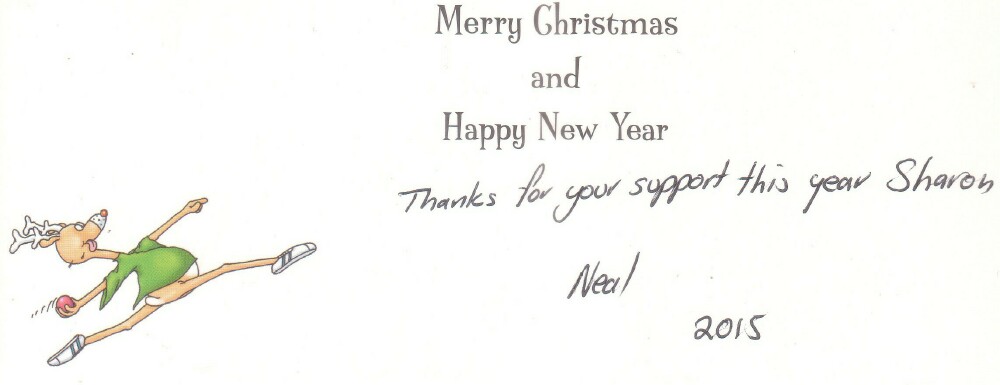 Merry Christmas
and
Happy New Year
Thanks for your support this year Sharon
Neal
2015